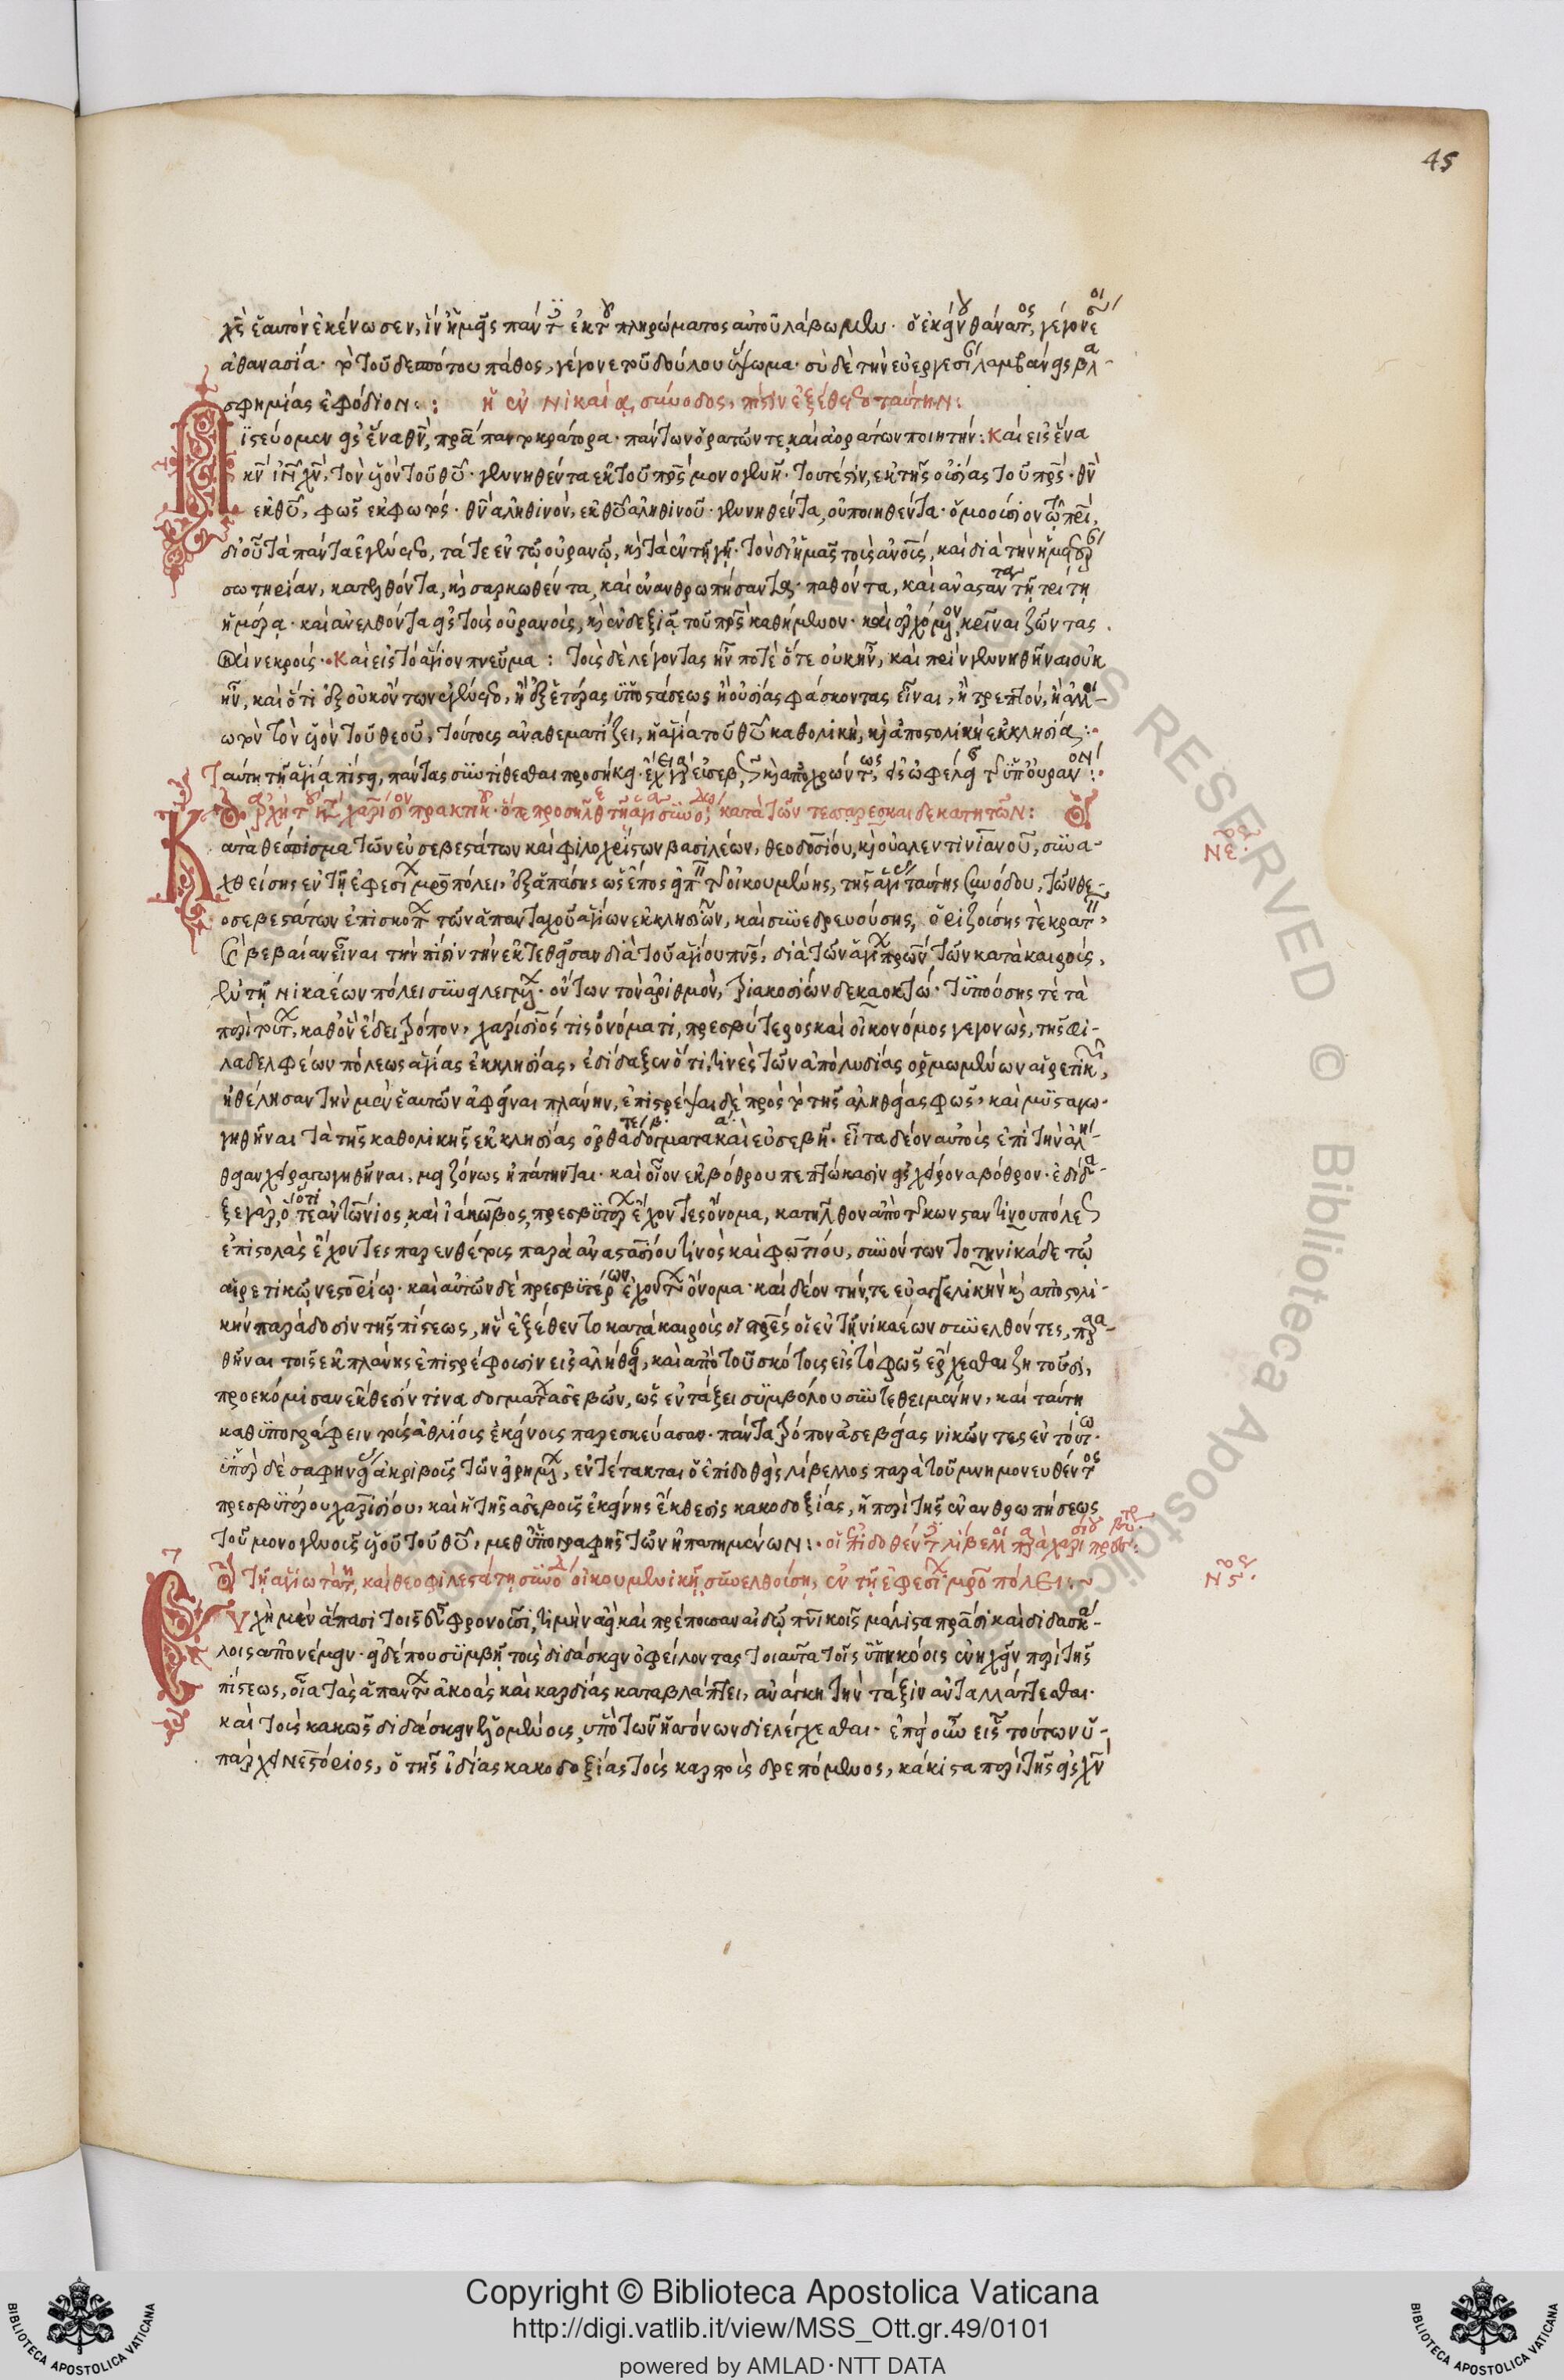 45
χς ἑαυτὸν ἐκένωσεν, ἵν ἡμεῖς πάντες ἐκ τοῦ πληρώματος αὐτοῦ λάβωμεν. ὁ ἐκείνου θάνατος, γέγονέ
ἀθανασία. τὸ τοῦ δεσπότου πάθος, γέγονε τοῦ δούλου ὕψωμα. σὺ δὲ τὴν εὐεργεσίαν λαμβάνεις βλα-
σφημίας ἐφόδιον: ἡ ἐν νικαίᾳ σύνοδος, πίστιν ἐξέθετο ταύτην:
Πιστεύομεν εἰς ἕνα θν, πρα παντοκράτορα. πάντων ὁρατῶν τε, καὶ ἀοράτων ποιητήν: Καὶ εἰς ἕνα
κν ιν χν, τὸν υἱὸν τοῦ θυ. γεννηθέντα ἐκ τοῦ πρς μονογενῆ. τουτέστιν, ἐκ τῆς οὐσίας τοῦ πρς. θν
ἐκ θυ, φῶς ἐκ φωτός. θν ἀληθινόν, ἐκ θυ ἀληθινοῦ. γεννηθέντα, οὐ ποιηθέντα. ὁμοούσιον τῷ πρι,
δι οὗ τὰ πάντα ἐγένετο, τά τε ἐν τῷ οὐρανῷ, καὶ τὰ ἐν τῇ γῇ. τὸν δι ἡμᾶς τοὺς ανους, καὶ διὰ τὴν ἡμετέραν
σωτηρίαν, κατελθόντα, καὶ σαρκωθέντα, καὶ ἐνανθρωπήσαντα. παθόντα, καὶ ἀναστάντα τῇ τρίτῃ
ἡμέρᾳ. καὶ ἀνελθόντα εἰς τοὺς οὐρανούς, καὶ ἐν δεξιᾷ τοῦ πρς καθήμενον. καὶ ἐρχόμενον κρῖναι ζῶντας
καὶ νεκρούς. Καὶ εἰς τὸ ἅγιον πνεῦμα: Τοὺς δὲ λέγοντας ἦν ποτὲ ὅτε οὐκ ἦν, καὶ πρὶν γεννηθῆναι οὐκ
ἦν, καὶ ὅτι ἐξ οὐκ ὄντων ἐγένετο, ἢ ἐξ ἑτέρας ὑποστάσεως ἢ οὐσίας φάσκοντας εἶναι, ἢ τρεπτόν, ἢ ἀλλοι-
ωτὸν τὸν υἱὸν τοῦ θεοῦ, τούτους ἀναθεματίζει, ἡ ἁγία τοῦ θυ καθολική, καὶ ἀποστολικὴ ἐκκλησία:
Ταύτῃ τῇ ἁγίᾳ πίστει, πάντας συντίθεσθαι προσήκει. ἔχει γὰρ εὐσεβῶς καὶ ἀποχρώντως, εἰς ὠφέλειαν τῆς ὑπ οὐρανόν:
ἀρχὴ τοῦ κατὰ χαρίσιον πρακτικοῦ. ὅπερ προσῆλθε τῇ ἁγίᾳ συνόδῳ, κατὰ τῶν τεσσαρεσκαιδεκατητῶν:
Κατὰ θέσπισμα τῶν εὐσεβεστάτων καὶ φιλοχρίστων βασιλέων, θεοδοσίου, καὶ οὐαλεντινιανοῦ, συνα-
χθείσης ἐν τῇ ἐφεσίων μητροπόλει, ἐξ ἁπάσης ὡς ἔπος εἰπεῖν τῆς οἰκουμένης, τῆς ἁγίας ταύτης συνόδου, τῶν θε-
οσεβεστάτων ἐπισκόπων τῶν ἁπανταχοῦ ἁγίων ἐκκλησιῶν, καὶ συνεδρευούσης, ὁριζούσης τὲ κρατεῖν,
καὶ βεβαίαν εἶναι τὴν πίστιν τὴν ἐκτεθεῖσαν διὰ τοῦ ἁγίου πνς, διὰ τῶν ἁγίων πρων τῶν κατὰ καιρούς,
ἐν τῇ νικαέων πόλει συνειλεγμένων. ὄντων τὸν ἀριθμόν, τριακοσίων δεκαοκτώ. τυπούσης τὲ τὰ
περὶ τούτων, καθ ὃν ἔδει τρόπον, χαρίσιός τις ὀνόματι, πρεσβύτερος καὶ οἰκονόμος γεγονώς, τῆς φι-
λαδελφέων πόλεως ἁγίας ἐκκλησίας, ἐδίδαξεν ὅτι, τινὲς τῶν ἀπὸ λυδίας ὁρμωμένων αἱρετικῶν,
ἠθέλησαν τὴν μὲν ἑαυτῶν ἀφεῖναι πλάνην, ἐπιστρέψαι δὲ πρὸς τὸ τῆς ἀληθείας φῶς, καὶ μυσταγω-
γηθῆναι τὰ τῆς καθολικῆς ἐκκλησίας ὀρθά τε δόγματα καὶ εὐσεβῆ. εἶτα δέον αὐτοὺς ἐπὶ τὴν ἀλή-
θειαν χειραγωγηθῆναι, μειζόνως ἠπάτηνται. καὶ οἷον ἐκ βόθρου πεπτώκασιν εἰς χείρονα βόθρον. ἐδίδα-
ξε γὰρ, ὅτι ὅ τε ἀντώνιος καὶ ἰάκωβος, πρεσβυτέρων ἔχοντες ὄνομα, κατῆλθον ἀπὸ τῆς κωνσταντινουπόλεως
ἐπιστολὰς ἔχοντες παρενθέτους παρὰ ἀναστασίου τινὸς καὶ φωτίου, συνόντων τὸ τηνικάδε τῷ
αἱρετικῷ νεστορίῳ. καὶ αὐτῶν δὲ πρεσβυτέρων ἐχόντων ὄνομα. καὶ δέον τήν, τε εὐαγγελικὴν καὶ ἀποστολι-
κὴν παράδοσιν τῆς πίστεως, ἣν ἐξέθεντο κατὰ καιροὺς οἱ πρες οἱ ἐν τῇ νικαέων συνελθόντες, παρα-
θῆναι τοῖς ἐκ πλάνης ἐπιστρέφουσιν εἰς ἀλήθειαν, καὶ ἀπὸ τοῦ σκότους εἰς τὸ φῶς ἔρχεσθαι ζητοῦσι,
προεκόμισαν ἔκθεσίν τινα δογμάτων ἀσεβῶν, ὡς ἐν τάξει συμβόλου συντεθειμένην, καὶ ταύτῃ
καθυπογράφειν τοὺς ἀθλίους ἐκείνους παρεσκεύασαν. πάντα τρόπον ἀσεβείας νικῶντες ἐν τούτῳ.
ὑπὲρ δὲ σαφηνείας ἀκριβοῦς τῶν εἰρημένων, ἐντέτακται ὁ ἐπιδοθεὶς λίβελλος παρὰ τοῦ μνημονευθέντος
πρεσβυτέρου χαρισίου, καὶ ἡ τῆς ἀσεβοῦς ἐκείνης ἔκθεσις κακοδοξίας, ἡ περὶ τῆς ἐνανθρωπήσεως
τοῦ μονογενοῦς υἱοῦ τοῦ θυ, μεθ ὑπογραφῆς τῶν ἠπατημένων:
Τῇ ἁγιωτάτῃ, καὶ θεοφιλεστάτῃ συνόδῳ οἰκουμενικῇ, συνελθούσῃ, ἐν τῇ ἐφεσίων μητροπόλει:
Εὐχὴ μὲν ἅπασι τοῖς εὖ φρονοῦσι, τιμὴν ἀεὶ καὶ πρέπουσαν αἰδῶ πνικοῖς μάλιστα πράσι καὶ διδασκά-
λοις ἀπονέμειν. εἰ δέ που συμβῇ τοὺς διδάσκειν ὀφείλοντας τοιαῦτα τοῖς ὑπηκόοις ἐνηχεῖν περὶ τῆς
πίστεως, οἷα τὰς ἁπάντων ἀκοὰς καὶ καρδίας καταβλάπτει, ἀνάγκη τὴν τάξιν ἀνταλλάττεσθαι.
καὶ τοὺς κακῶς διδάσκειν ἑλομένους, ὑπὸ τῶν ἡττόνων διελέγχεσθαι. ἐπεὶ οὖν εἷς τούτων ὑ-
πάρχει νεστόριος, ὁ τῆς ἰδίας κακοδοξίας τοὺς καρποὺς δρεπόμενος, κάκιστα περὶ τῆς εἰς χν
Copyright © Biblioteca Apostolica Vaticana
http://digi.vatlib.it/view/MSS_Ott.gr.49/0101
powered by AMLAD·NTT DATA
BIBLIOTECA APOSTOLICA VATICANA
BIBLIOTECA APOSTOLICA VATICANA